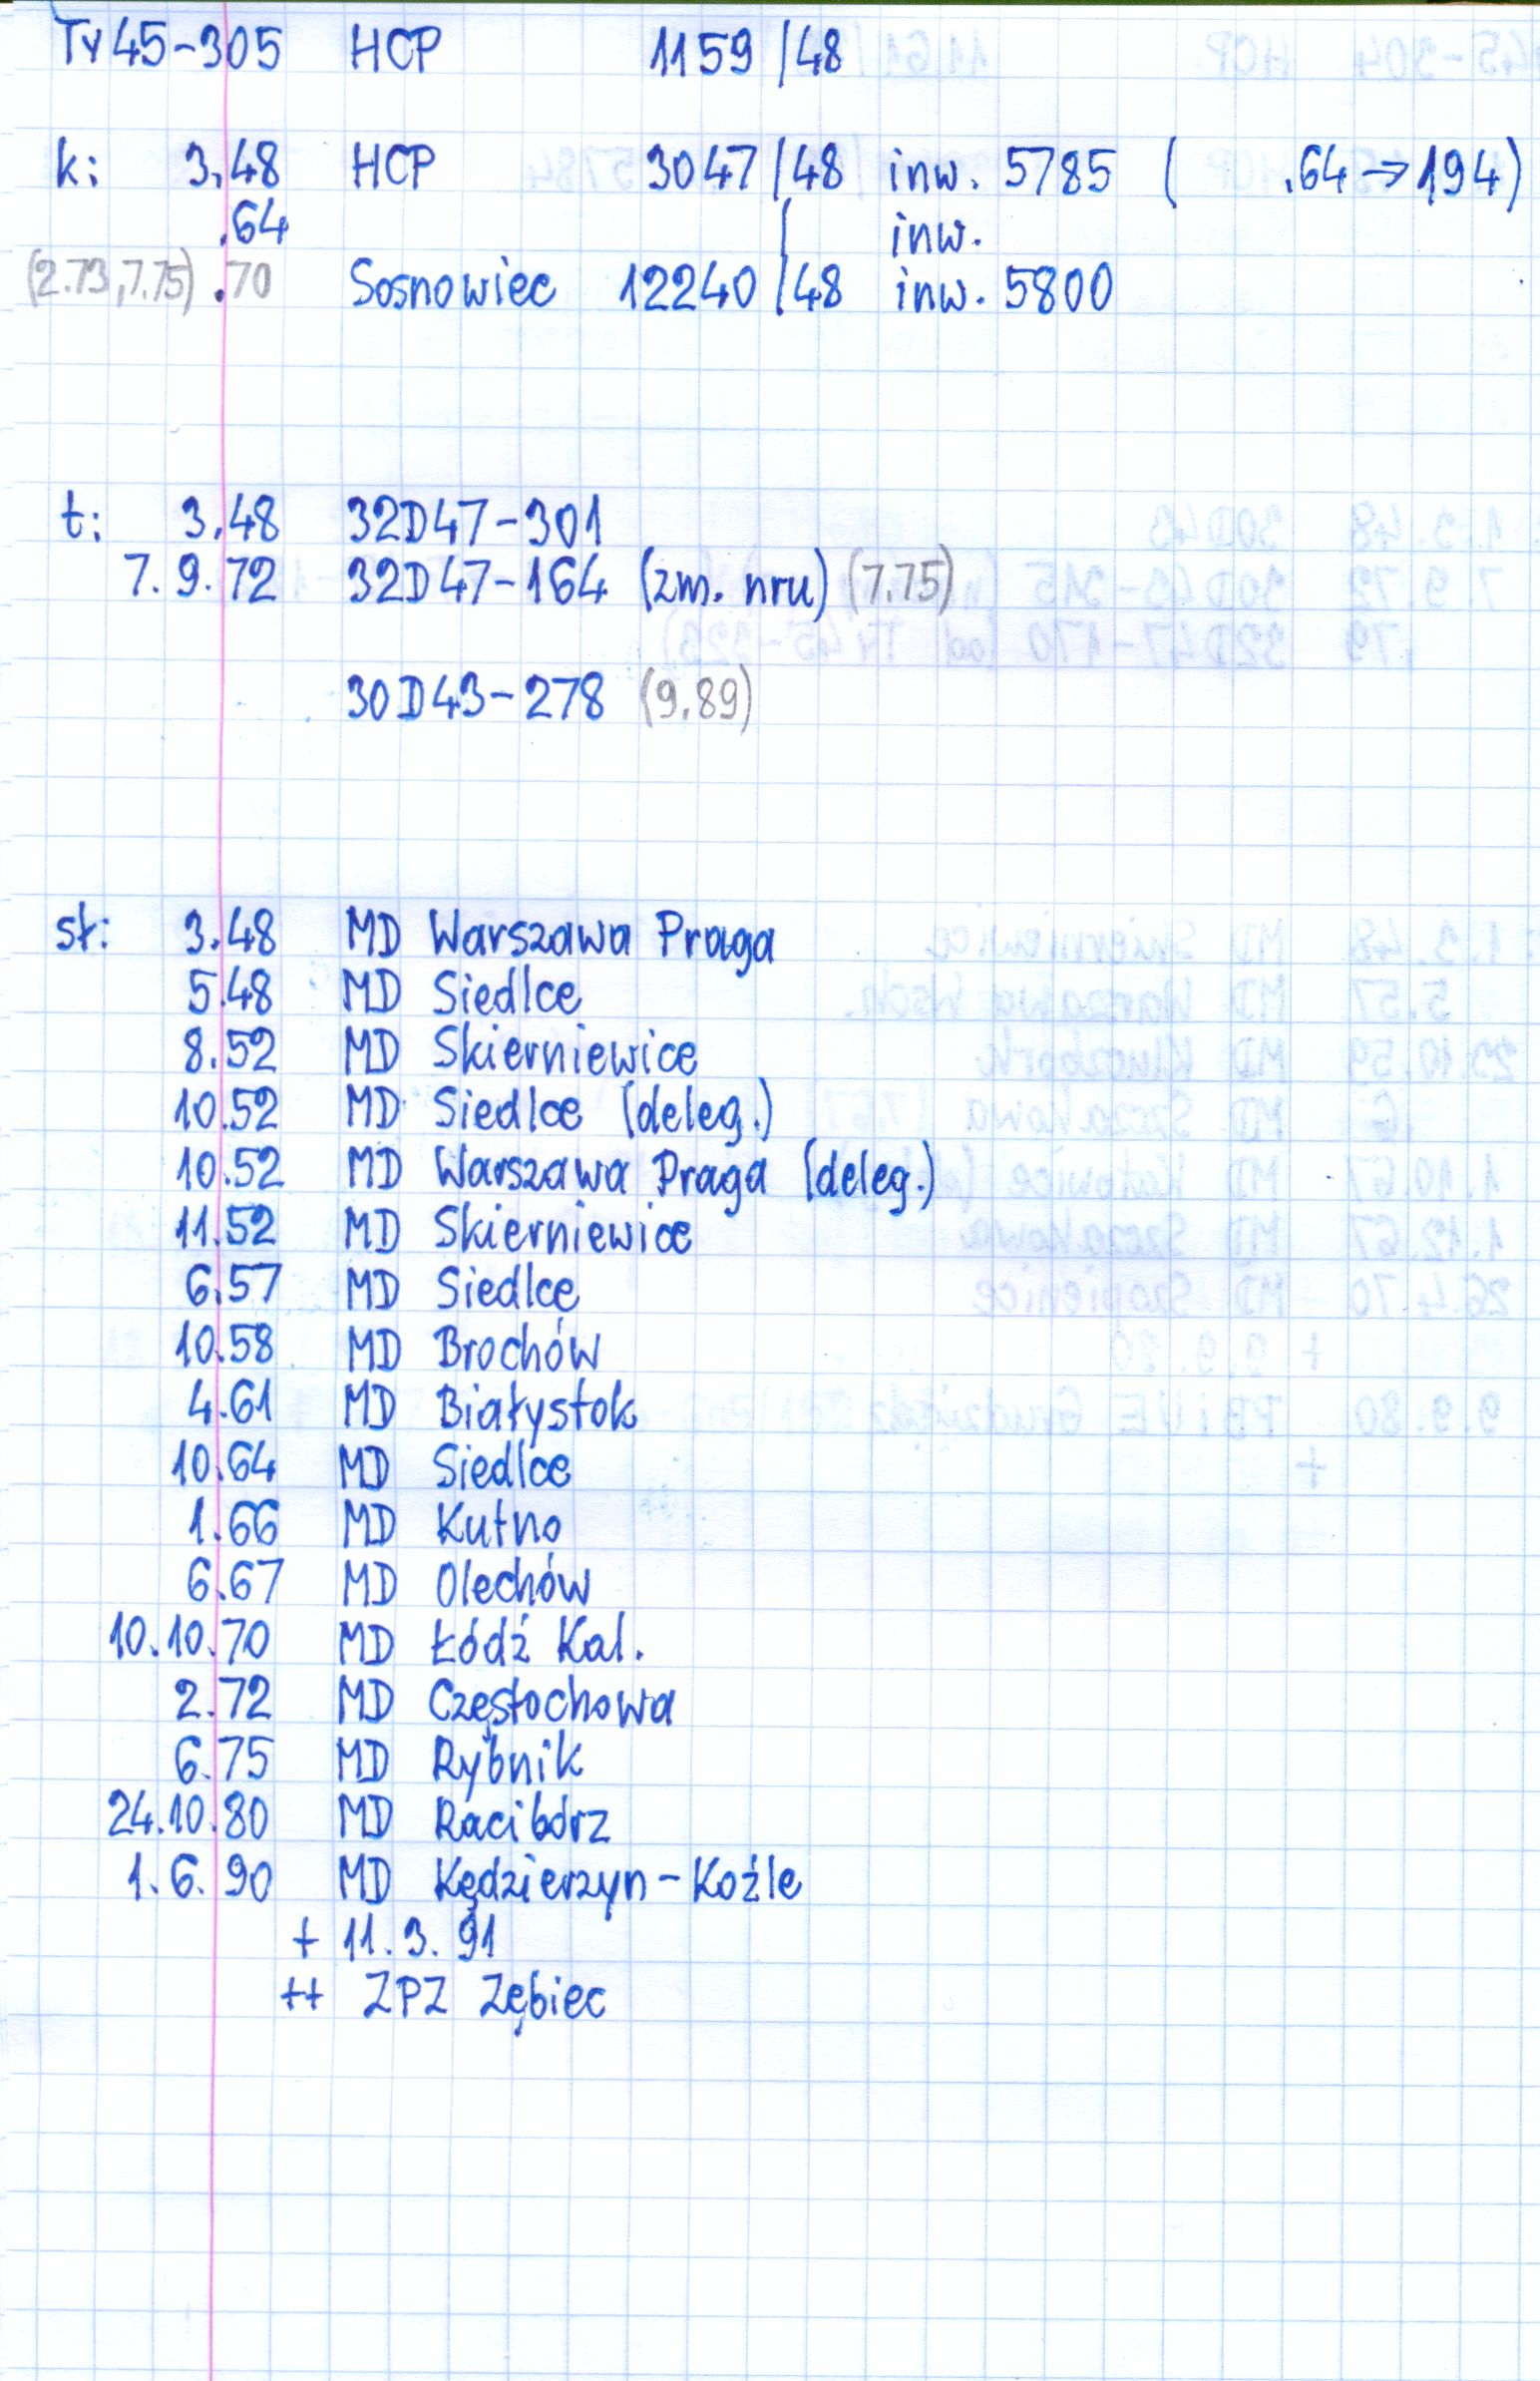 Ty45-305 HCP 1159/48
k: 3.48 HCP 3047/48 inw. 5785 ( .64→194)
.64 / inw.
(2.73, 7.75) .70 Sosnowiec 12240/48 inw. 5800
t: 3.48 32D47-301
7.9.72 32D47-164 (zm. nru) (7.75)
30D43-278 (9.89)
sł: 3.48 MD Warszawa Praga
5.48 MD Siedlce
8.52 MD Skierniewice
10.52 MD Siedlce (deleg.)
10.52 MD Warszawa Praga (deleg.)
11.52 MD Skierniewice
6.57 MD Siedlce
10.58 MD Brochów
4.61 MD Białystok
10.64 MD Siedlce
1.66 MD Kutno
6.67 MD Olechów
10.10.70 MD Łódź Kal.
2.72 MD Częstochowa
6.75 MD Rybnik
24.10.80 MD Racibórz
1.6.90 MD Kędzierzyn-Koźle
+ 11.3.91
++ ZPZ Zębiec